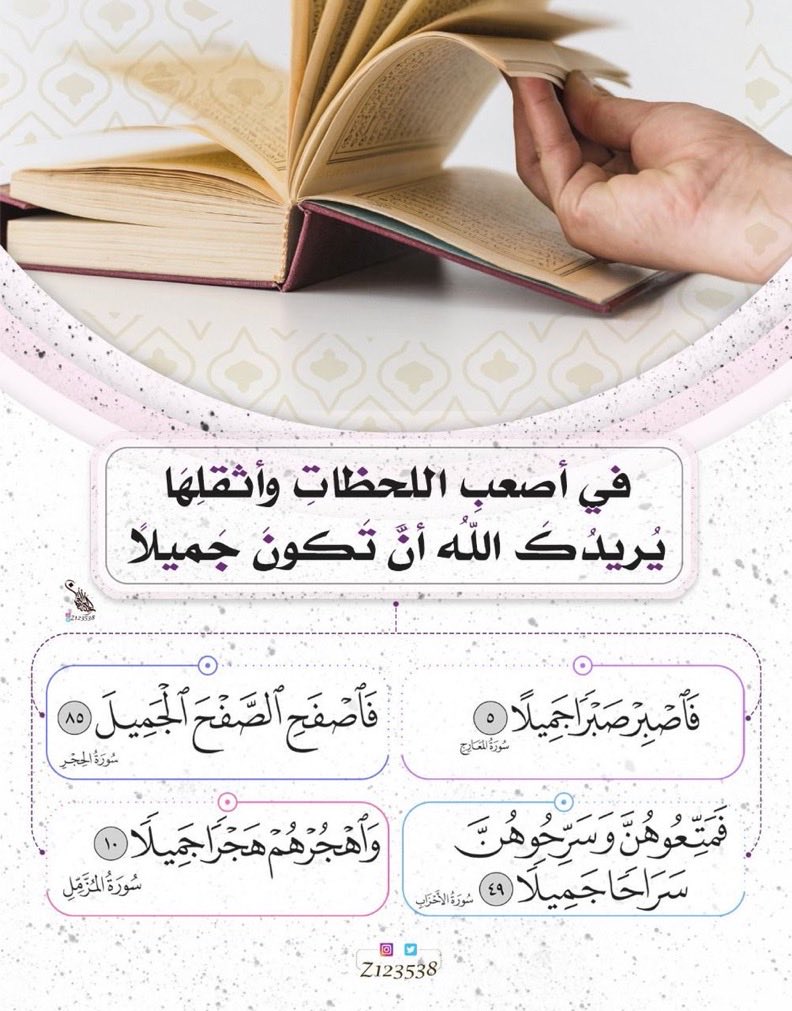 في أصعبِ اللحظاتِ وأثقلِهَا
يُريدُكَ اللهُ أنَّ تَكونَ جَميلًا
Z123538
فَٱصۡبِرۡ صَبۡرٗا جَمِيلًا ٥
سُورَةُ المَعَارِجِ
فَٱصۡفَحِ ٱلصَّفۡحَ ٱلۡجَمِيلَ ٨٥
سُورَةُ الحِجْرِ
فَمَتِّعُوهُنَّ وَسَرِّحُوهُنَّ
سَرَاحٗا جَمِيلٗا ٤٩ سُورَةُ الأَحْزَابِ
وَٱهۡجُرۡهُمۡ هَجۡرٗا جَمِيلٗا ١٠
سُورَةُ المُزَّمِّلِ
Z123538